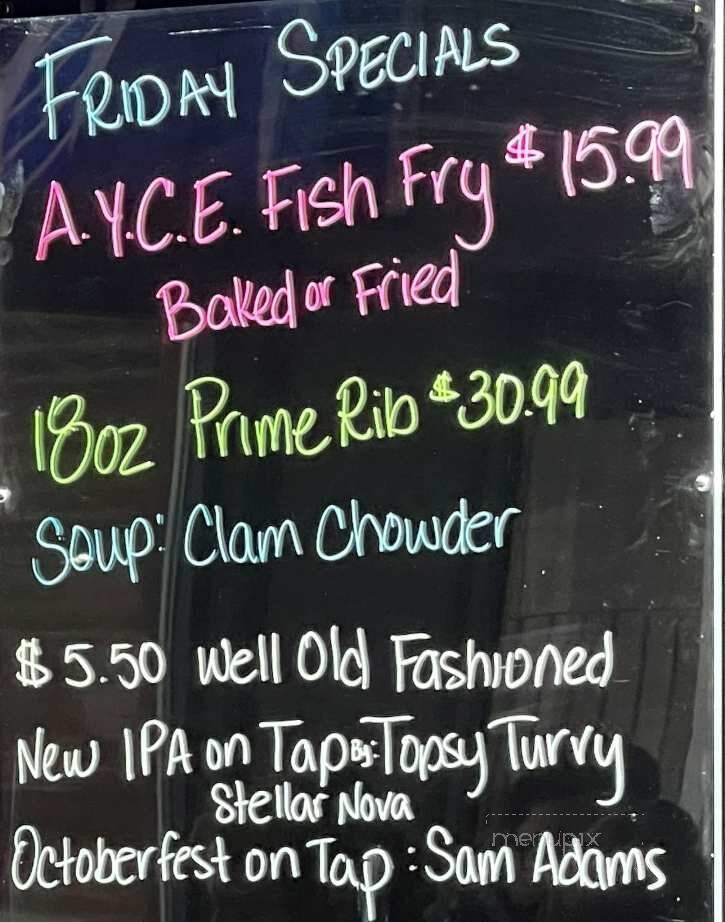 Friday Specials
A.Y.C.E. Fish Fry $15.99
Baked or Fried
18oz Prime Rib $30.99
Soup: Clam Chowder
$5.50 Well Old Fashioned
New IPA on Tap By: Topsy Turvy
Stellar Nova
menupix
Octoberfest on Tap: Sam Adams